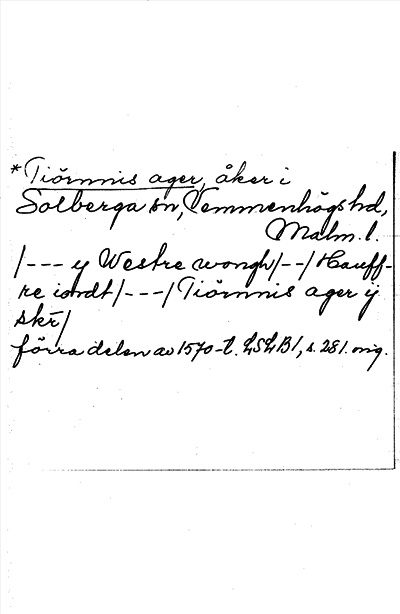 *Tiörnnis ager, åker i
Solberga sn, Vemmenhögs hd,
Malm. l.
/--- y Westre wongh/--/Hauff-
re iordt/---/Tiörnnis ager ij
skr/
förra delen av 1570-t. LSLB1, s. 281. orig.